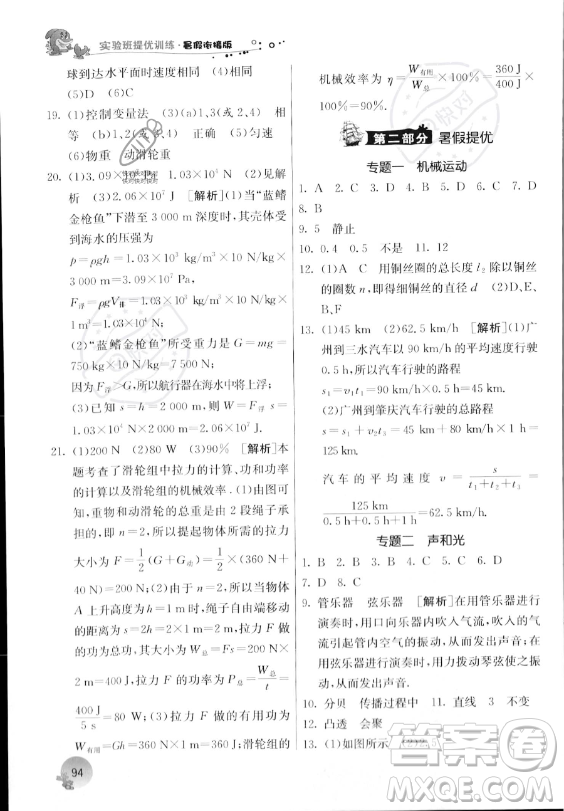 实验班提优训练·暑假衔接版
球到达水平面时速度相同　(4)相同
(5)D　(6)C
19. (1)控制变量法　(3)a)1、3(或2、4)　相
等　(b)1、2(或3、4)　正确　(5)匀速
(6)物重　动滑轮重
20. (1)3.09×10⁷　1.03×10⁴　(2)见解
析　(3)2.06×10⁷ J　[解析](1)当“蓝鳍
金枪鱼”下潜至 3 000 m 深度时,其壳体受
到海水的压强为
p=ρgh=1.03×10³ kg/m³×10 N/kg×
3 000 m=3.09×10⁷ Pa
F浮=ρgV排=1.03×10³ kg/m³×10 N/kg×
1 m³=1.03×10⁴ N
(2)“蓝鳍金枪鱼”所受重力 G=mg=
750 kg×10 N/kg=7 500 N;
因为F浮>G,所以航行器在海水中将上浮;
(3)已知 s=h=2 000 m,所以W=Fs=
1.03×10⁴ N×2 000 m=2.06×10⁷ J
21. (1)200 N　(2)80 W　(3)90%　[解析]本
题考查了滑轮组中拉力的计算、功和功率
的计算以及滑轮组的机械效率. (1)由图可
知,物体和动滑轮的总重是由 2 段绳子承
担的,即 n=2,所以提起物体所需的拉力
大小为 F=1/2(G+G动)=1/2×(360 N+
40 N)=200 N;(2)因为 n=2,所以当物体
A 上升高度为 1 m 时,绳子自由端移动
的距离为 s=nh=2×1 m=2 m,所以拉力
F 的功率大小为 P总=W总/t=Fs/t=200 N×
2 m=400 J,拉力 F 做功的功率为 P总=W总/t=
400 J/5 s=80 W;(3)拉力 F 做的有用功为
W有用=Gh=360 N×1 m=360 J;滑轮组的
94
机械效率为 η=W有用/W总×100%=360 J/400 J×
100%=90%.
第二部分　暑假提优
专题一　机械运动
1. A　2. C　3. B　4. D　5. D　6. C　7. D
8. B
9. 5　静止
10. 0.4　0.5　不是　11. 12
12. (1)A　C　用铜丝圈的总长度 l₂ 除以铜丝
的圈数 n,即得细铜丝的直径 d　(2)D、E、
B、F
13. (1)45 km　(2)62.5 km/h　[解析](1)广
州到三水汽车以 90 km/h 的平均速度行驶
0.5 h,所以汽车行驶的路程
s₁=v₁t₁=90 km/h×0.5 h=45 km
(2)广州到肇庆汽车行驶的总路程
s=s₁+s₂=45 km+80 km=125 km
汽车的平均速度 v=s/(t₁+t₂+t₃)=
125 km/(0.5 h+0.5 h+1 h)=62.5 km/h
专题二　声和光
1. B　2. B　3. C　4. B　5. D　6. B
7. D　8. C
9. 管乐器　弦乐器　[解析]在用管乐器进行
演奏时,用口向乐器内吹入气流,吹入的气
流引起管内空气的振动,从而发出声音.用
弦乐器进行演奏时,用力拨动琴弦使之振
动,从而发出声音.
10. 分贝　传播过程中　11. 直线　3　不变
12. 凸透　会聚
13. (1)如图所示　(2)2
答案圈
MXQE.COM